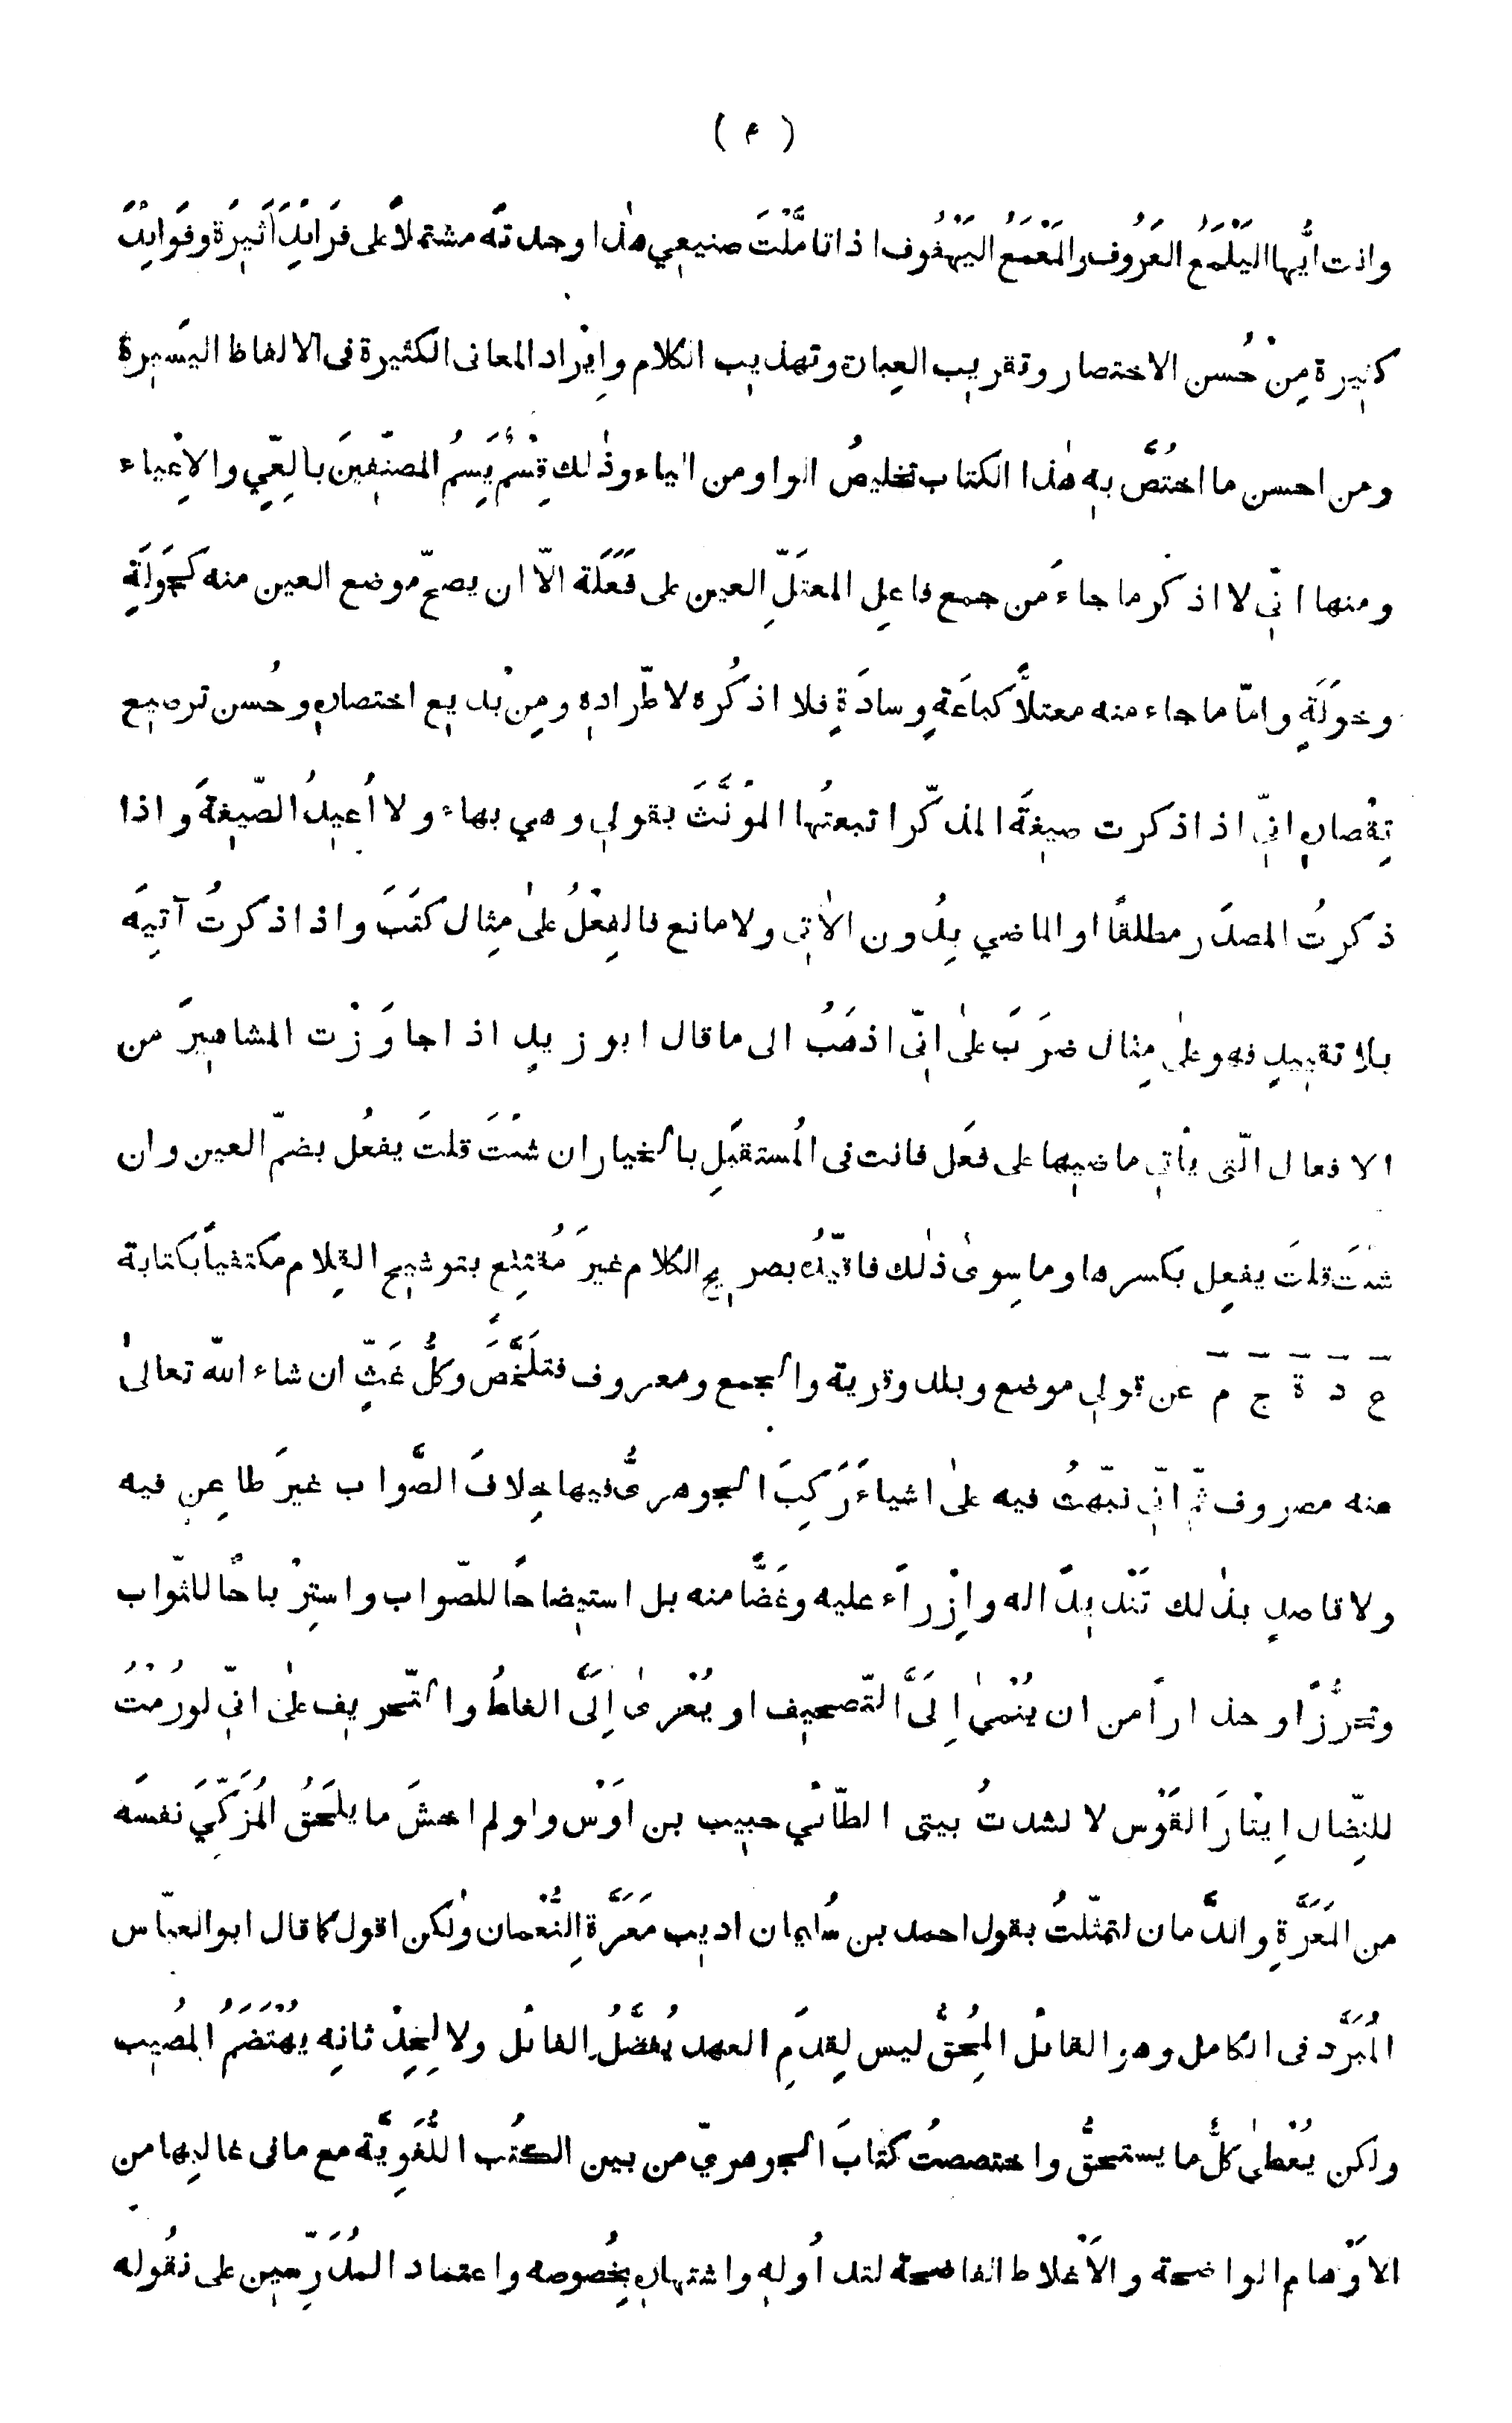 ( ۴ )
وانت ايُّها اليَلْمَعُ العَرُوف والمَعْمَعُ اليَهْفُوف اذا تامَّلْتَ صنيعي هٰذا وجدته مشتملاً على فَرَائِدَ اَثِيرَة وفَوَائِدَ
كثيرة مِنْ حُسن الاختصار وتقريب العِبارة وتهذيب الكلام واِيْراد المعانى الكثيرة فى الالفاظ اليَسيرة
ومن احسن ما اختُصَّ به هٰذا الكتاب تخليصُ الواو من الياء وذٰلك قِسْمٌ يَسِمُ المصنّفينَ بالعِيّ والاِعْياء
ومنها انّي لا اذكر ما جاءَ من جمع فاعِل المعتلِّ العين على فَعَلَة الّا ان يصحّ موضع العين منه كجَوَلَةٍ
وخَوَلَةٍ وامّا ما جاء منه معتلاً كباعَةٍ وسادَةٍ فلا اذكُره لاطّراده ومِنْ بديع اختصاره وحُسن ترصيع
تِقْصاره انّي اذا ذكرت صيغَةَ المذكّر اتبعتُها المؤنَّثَ بقولي وهي بهاء ولا اُعيدُ الصّيغةَ واذا
ذكرتُ المصدَر مطلقًا او الماضي بِدُون الاٰتي ولا مانع فالفِعْلُ علىٰ مِثال كَتَبَ واذا ذكرتُ آتيَه
بلا تقييد فهو علىٰ مِثال ضَرَبَ علىٰ انّي اذهَبُ الى ما قال ابو زيد اذا جاوَزْت المشاهيرَ من
الافعال الّتى يأتي ماضيها على فعَل فانت فى المُستقبَلِ بالخيار ان شئتَ قلتَ يفعُل بضمّ العين وان
شئتَ قلتَ يفعِل بكسرها وما سِوىٰ ذٰلك فاقيّدُه بصريح الكلام غيرَ مُقتنِع بتوشيح القِلام مكتفياً بكتابة
ع د ة ج م عن قولي موضع وبلد وقرية والجمع ومعروف فتلَخَّصَ وكلُّ غَثٍّ ان شاء الله تعالىٰ
عنه مصروف ثمّ انّي نبّهتُ فيه علىٰ اشياءَ رَكِبَ الجوهرىُّ فيها خِلافَ الصَّواب غيرَ طاعِنٍ فيه
ولا قاصدٍ بذٰلك تَنْديدًا له واِزْراءً عليه وغَضًّا منه بل استيضاحًا للصّواب واستِرْباحًا للثّواب
وتحرُّزًا وحذاراً من ان يُنْمىٰ اِلَىَّ التّصحيف او يُعْزىٰ اِلَىَّ الغلطُ والتّحريف علىٰ انّي لو رُمْتُ
للنِّضال اِيْتارَ القَوْس لانشدتُ بيتى الطّائي حبيب بن اَوْس ولو لم اخشَ ما يلحَقُ المُزَكّيَ نفسَه
من المَعَرَّةِ والدَّمان لتمثّلتُ بقول احمد بن سُليمان اديب مَعَرَّةِ النُّعْمان ولٰكن اقول كما قال ابو العبّاس
المُبَرَّد فى الكامل وهو القائل المُحِقُّ ليس لِقِدَمِ العهد يُفضَّلُ الفائل ولا لِحِدْثانه يُهْتَضَمُ المُصيب
ولكن يُعْطىٰ كلٌّ ما يستحقُّ واختصصتُ كتابَ الجوهريّ من بين الكُتب اللُّغَويَّة مع مافى غالبها من
الاَوْهام الواضحة والاَغْلاط الفاضحة لتداُوله واشتهاره بِخُصوصه واعتماد المُدَرّسين على نقُوله